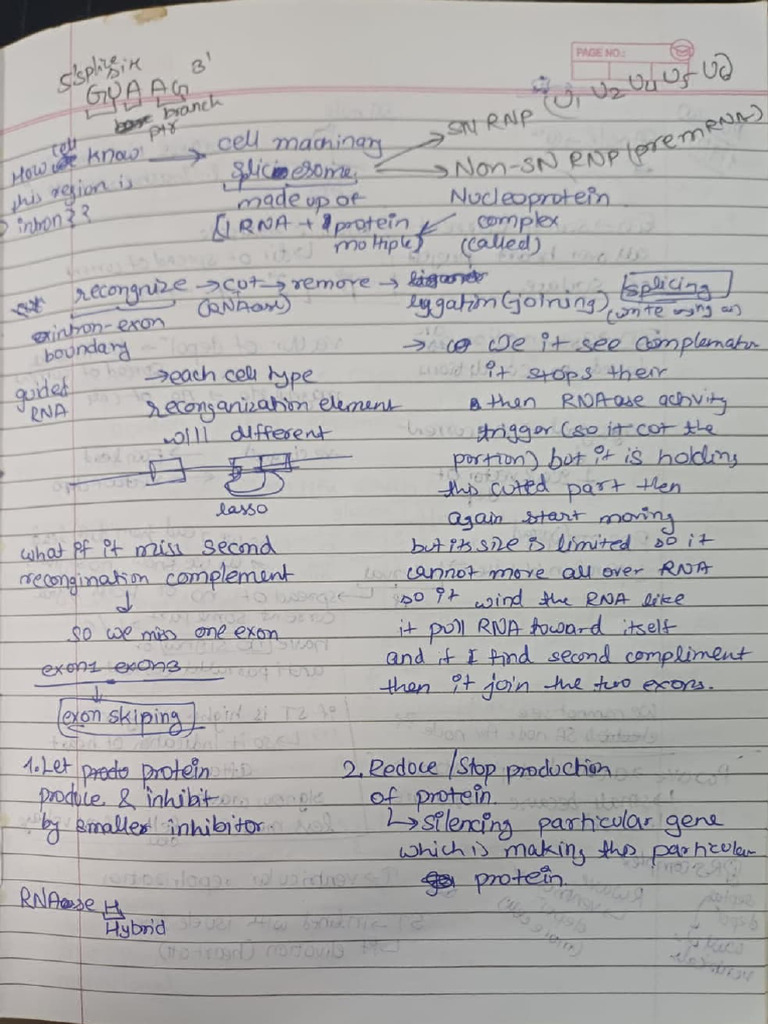 PAGE NO.:
5' splice site 3'
GUA AG
branch
ptr
SNRNP (U1 U2 U4 U5 U6)
How cell know → cell machinary
this region is
intron??
splicesome
→ Non-SNRNP (premRNA)
made up of
(1 RNA + 1 protein
multiple)
Nucleoprotein
complex
(called)
recongnize → cut → remove →
(RNAase)
leggation (joining) splicing
intron-exon
boundary
guides
RNA
→ each cell type
reconganization element
will different
lasso
what if it miss second
recongination complement
↓
so we miss one exon
exon1 exon3
↓
exon skiping
→ We it see complematr
it stops their
then RNAase activity
trigger (so it cot the
portion) but it is holding
this cuted part then
again start moving
but its size is limited so it
cannot move all over RNA
so it wind the RNA like
it pull RNA toward itself
and if I find second compliment
then it join the two exons.
1. Let protein
produce & inhibit
by smaller inhibitor
2. Reduce / Stop production
of protein.
↳ silencing particular gene
which is making this particular
protein.
RNAase H
Hybrid